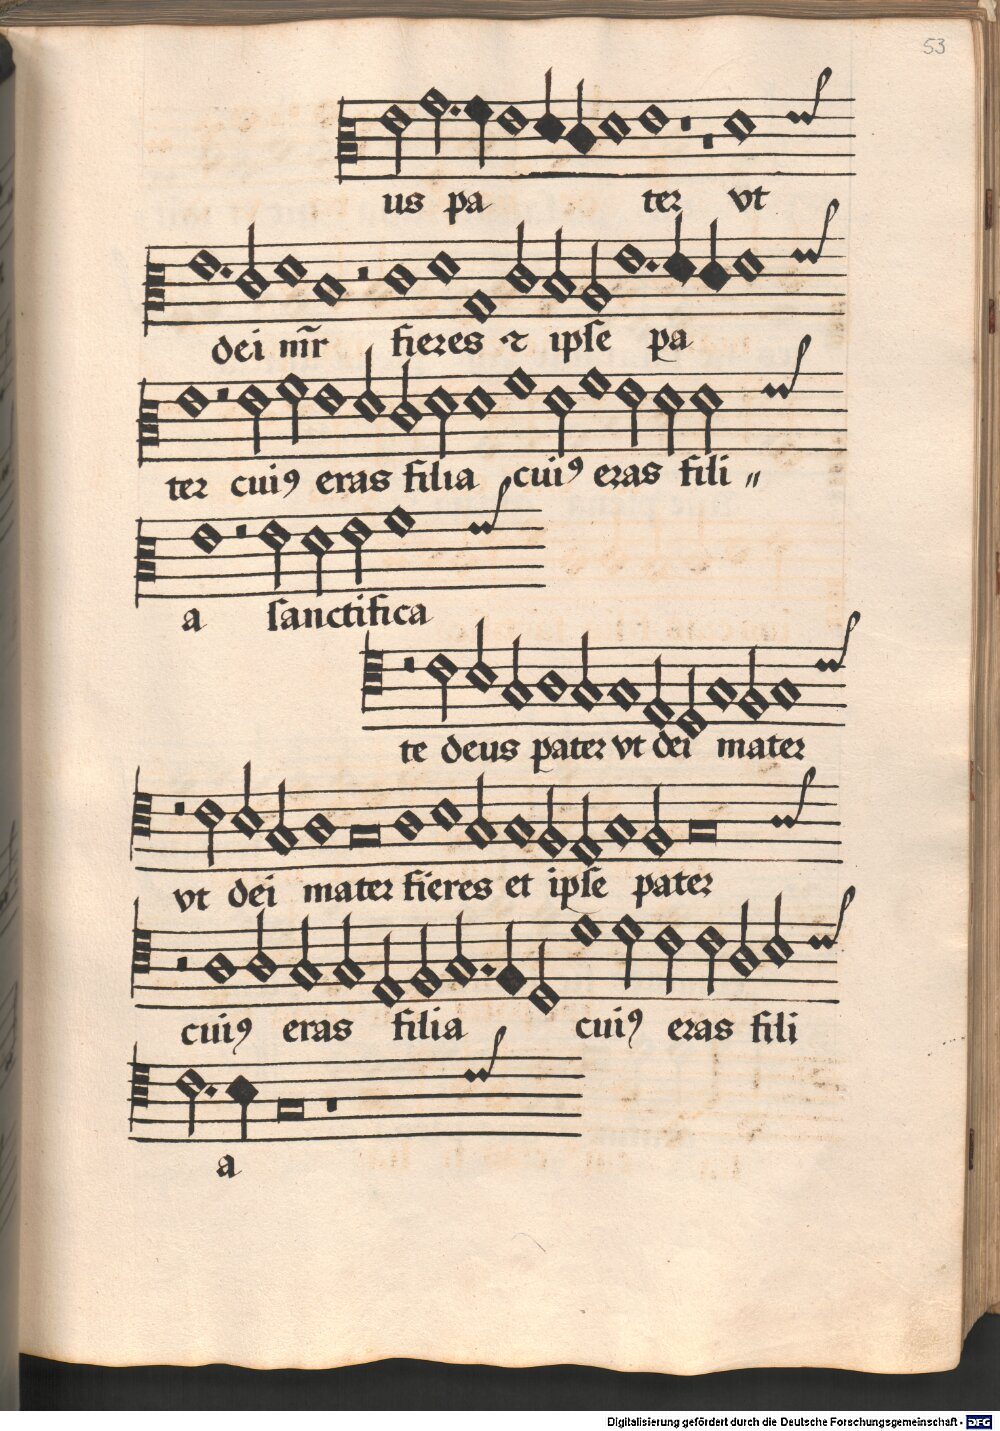 53
us pa ter vt
dei mr̃ fieres ⁊ ipſe pa
ter cuiꝰ eras filia cuiꝰ eras fili〃
a ſanctifica
te deus pater vt dei mater
vt dei mater fieres et ipſe pater
cuiꝰ eras filia cuiꝰ eras fili
a
Digitalisierung gefördert durch die Deutsche Forschungsgemeinschaft - DFG